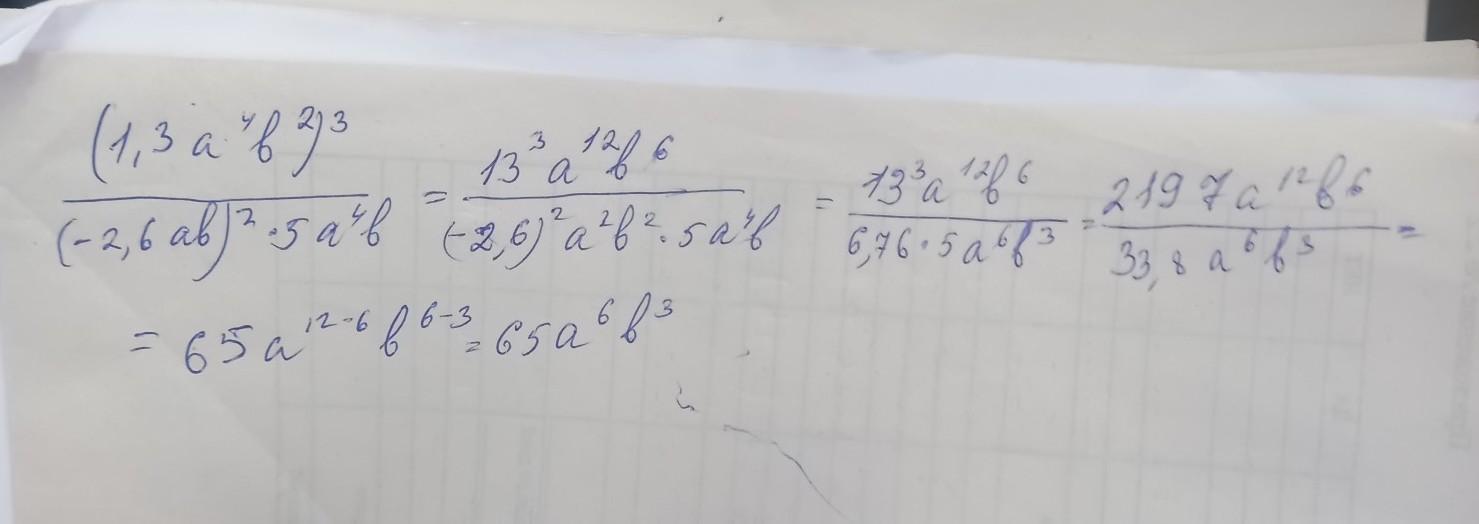 (1,3 a⁴b²)³ / (-2,6 ab)² · 5a⁴b = 13³a¹²b⁶ / (-2,6)²a²b² · 5a⁴b = 13³a¹²b⁶ / 6,76 · 5a⁶b³ = 2197a¹²b⁶ / 33,8 a⁶b³ =
= 65a¹²⁻⁶b⁶⁻³ = 65a⁶b³